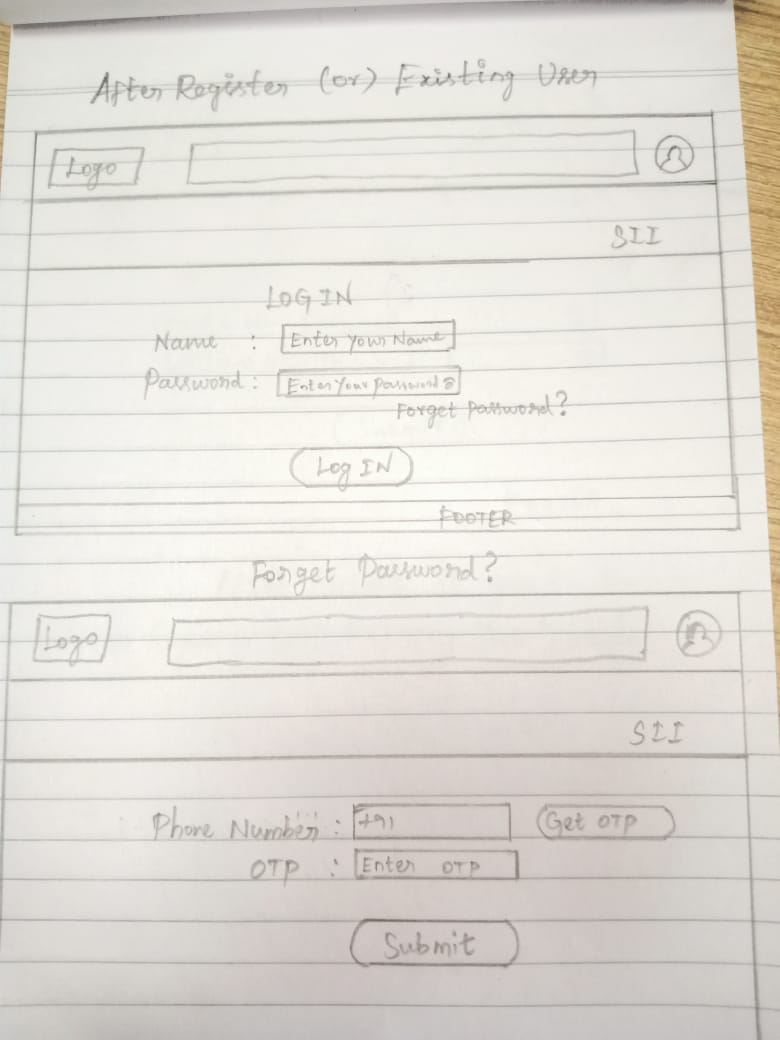 After Register (or) Existing User
Logo
SII
LOG IN
Name : Enter your Name
Password : Enter Your password
Forget password?
Log IN
FOOTER
Forget Password?
Logo
SII
Phone Number : +91 Get OTP
OTP : Enter OTP
Submit